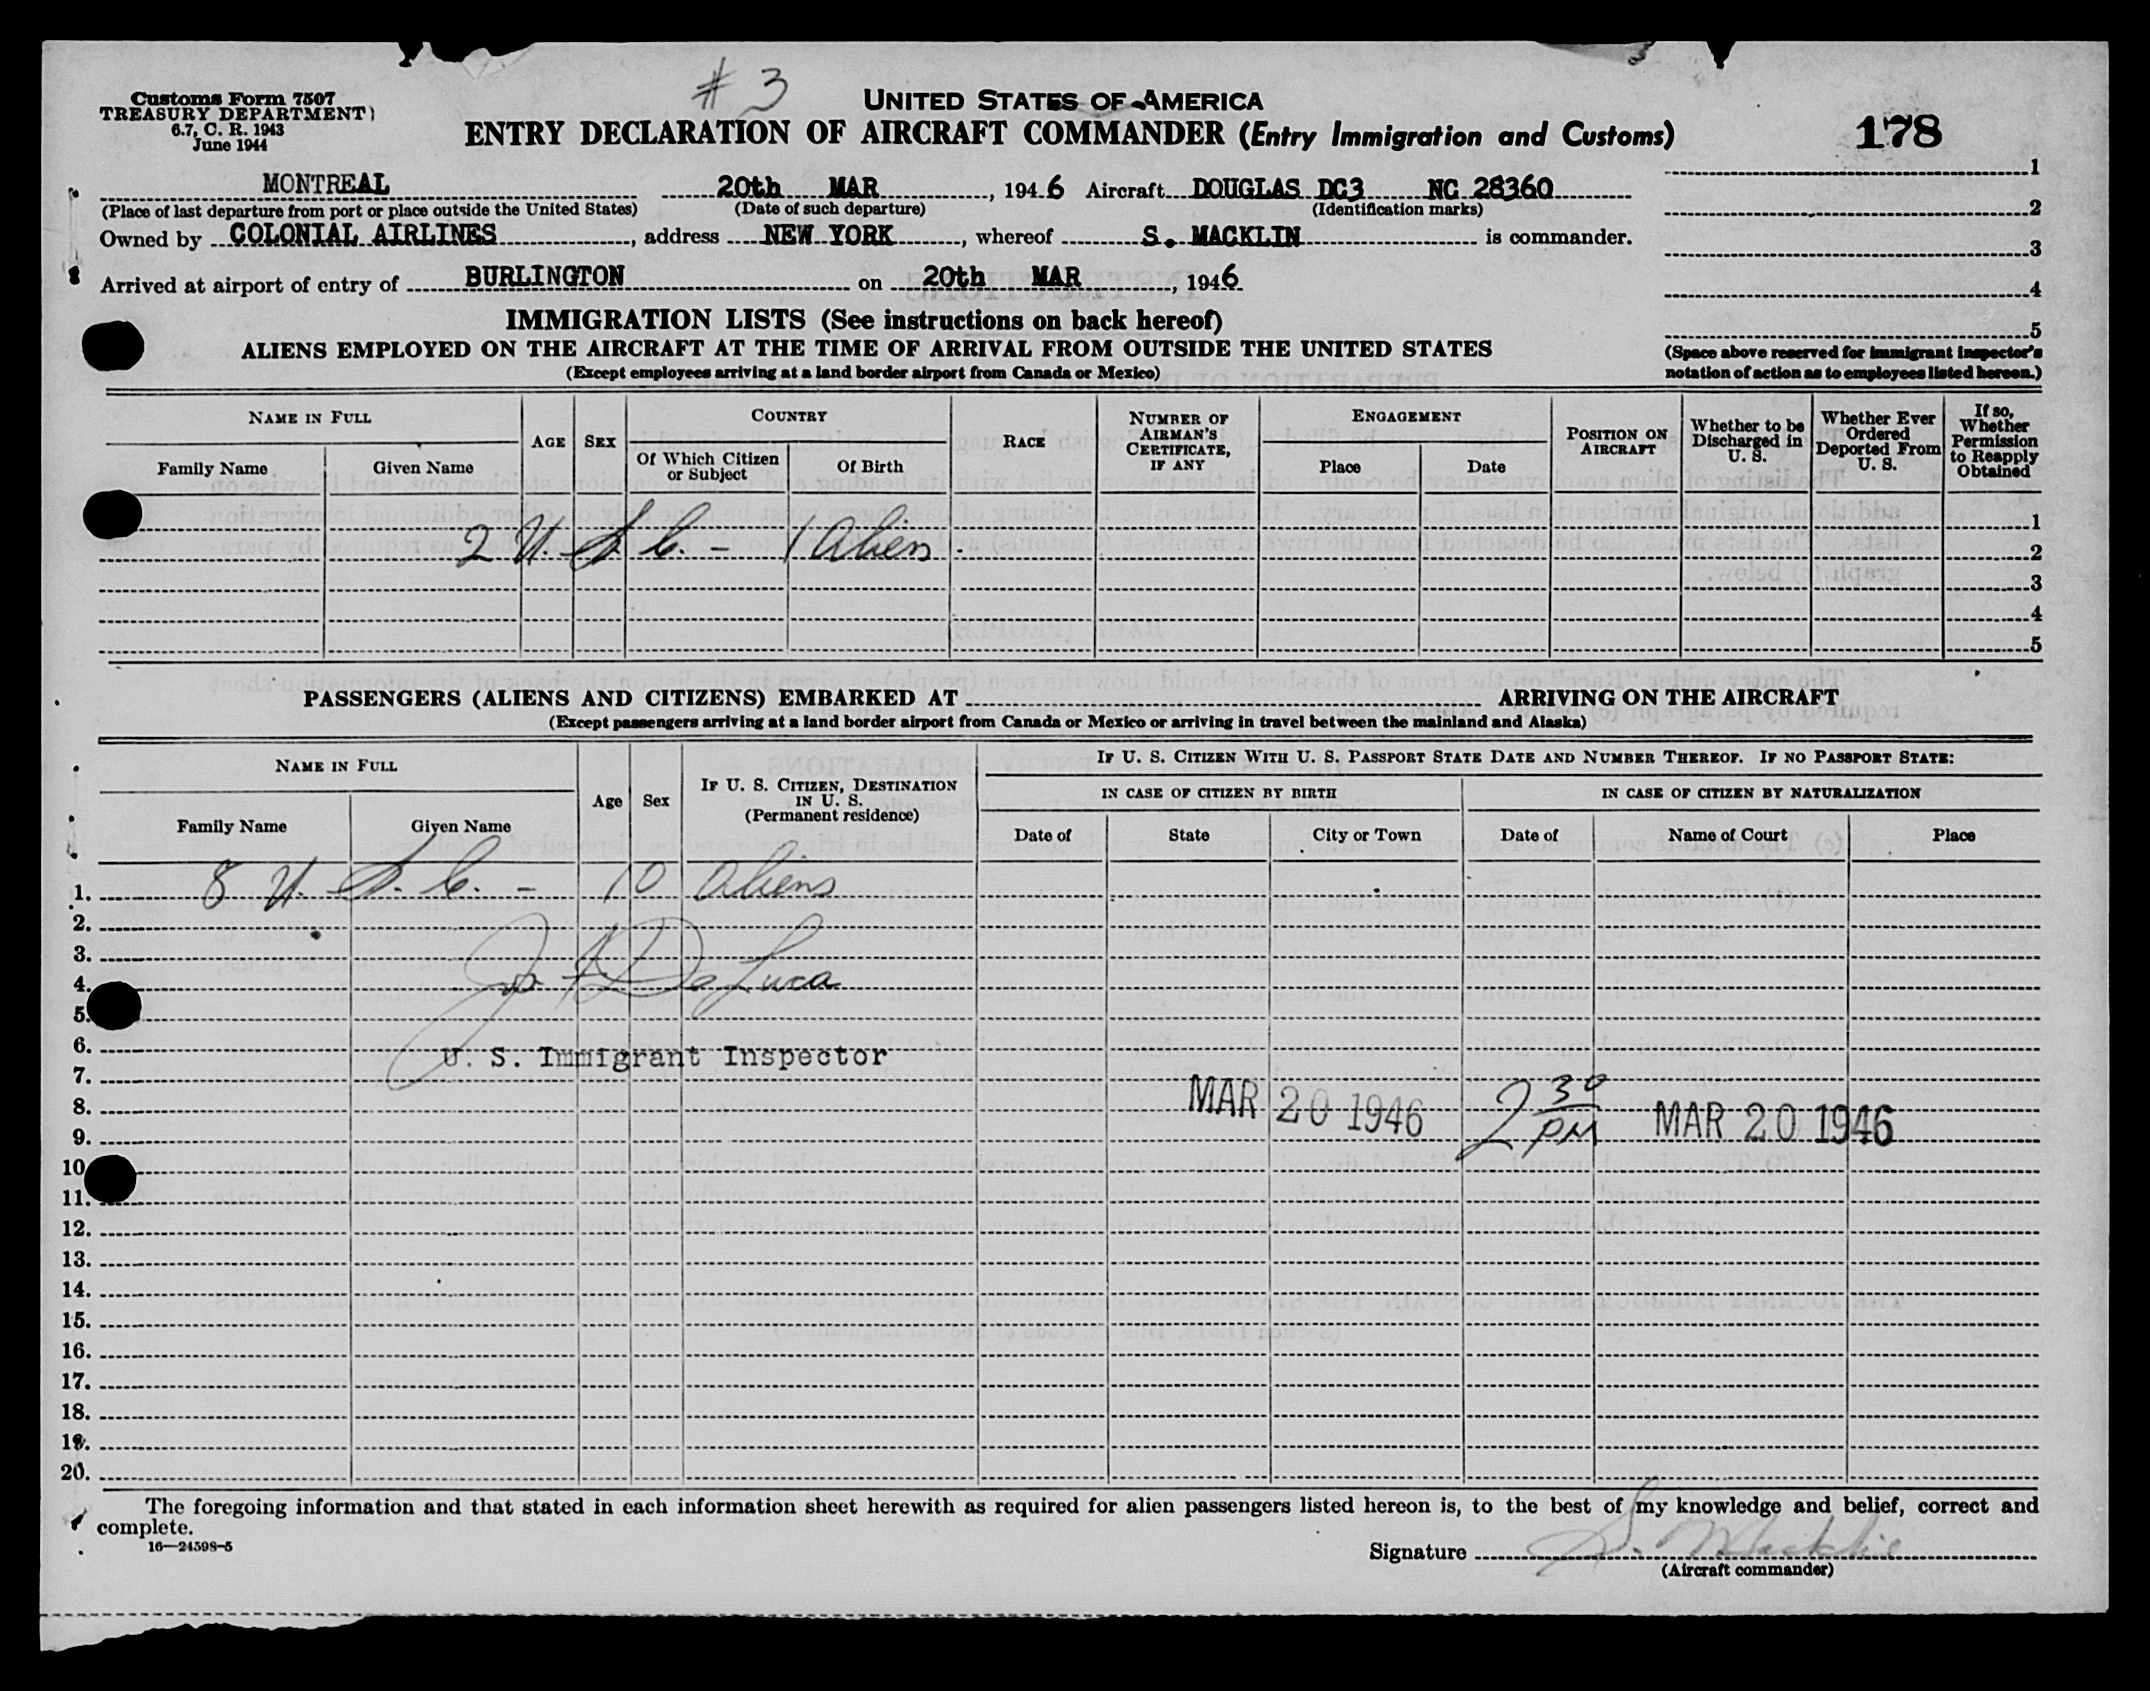 # 3
Customs Form 7507
TREASURY DEPARTMENT
6.7, C. R. 1943
June 1944
UNITED STATES OF AMERICA
ENTRY DECLARATION OF AIRCRAFT COMMANDER (Entry Immigration and Customs)
178
MONTREAL 20th MAR, 1946 Aircraft DOUGLAS DC3 NC 28360
(Place of last departure from port or place outside the United States) (Date of such departure) (Identification marks)
Owned by COLONIAL AIRLINES, address NEW YORK, whereof S. MACKLIN is commander.
Arrived at airport of entry of BURLINGTON on 20th MAR, 1946
1
2
3
4
5
(Space above reserved for immigrant inspector's
notation of action as to employees listed hereon.)
IMMIGRATION LISTS (See instructions on back hereof)
ALIENS EMPLOYED ON THE AIRCRAFT AT THE TIME OF ARRIVAL FROM OUTSIDE THE UNITED STATES
(Except employees arriving at a land border airport from Canada or Mexico)
NAME IN FULL
Family Name Given Name
AGE
SEX
COUNTRY
Of Which Citizen
or Subject
Of Birth
RACE
NUMBER OF
AIRMAN'S
CERTIFICATE,
IF ANY
ENGAGEMENT
Place Date
POSITION ON
AIRCRAFT
Whether to be
Discharged in
U. S.
Whether Ever
Ordered
Deported From
U. S.
If so,
Whether
Permission
to Reapply
Obtained
1
2 U. S. C. - 1 Alien. 2
3
4
5
PASSENGERS (ALIENS AND CITIZENS) EMBARKED AT ARRIVING ON THE AIRCRAFT
(Except passengers arriving at a land border airport from Canada or Mexico or arriving in travel between the mainland and Alaska)
NAME IN FULL
Family Name Given Name
Age
Sex
IF U. S. CITIZEN, DESTINATION
IN U. S.
(Permanent residence)
IF U. S. CITIZEN WITH U. S. PASSPORT STATE DATE AND NUMBER THEREOF. IF NO PASSPORT STATE:
IN CASE OF CITIZEN BY BIRTH IN CASE OF CITIZEN BY NATURALIZATION
Date of State City or Town Date of Name of Court Place
1. 8 U. S. C. - 10 Aliens
2.
3.
4. De Luca
5.
6. U. S. Immigrant Inspector
7.
8. MAR 20 1946 2 30 PM MAR 20 1946
9.
10.
11.
12.
13.
14.
15.
16.
17.
18.
19.
20.
The foregoing information and that stated in each information sheet herewith as required for alien passengers listed hereon is, to the best of my knowledge and belief, correct and
complete.
16—24598-5
Signature S. Macklin
(Aircraft commander)